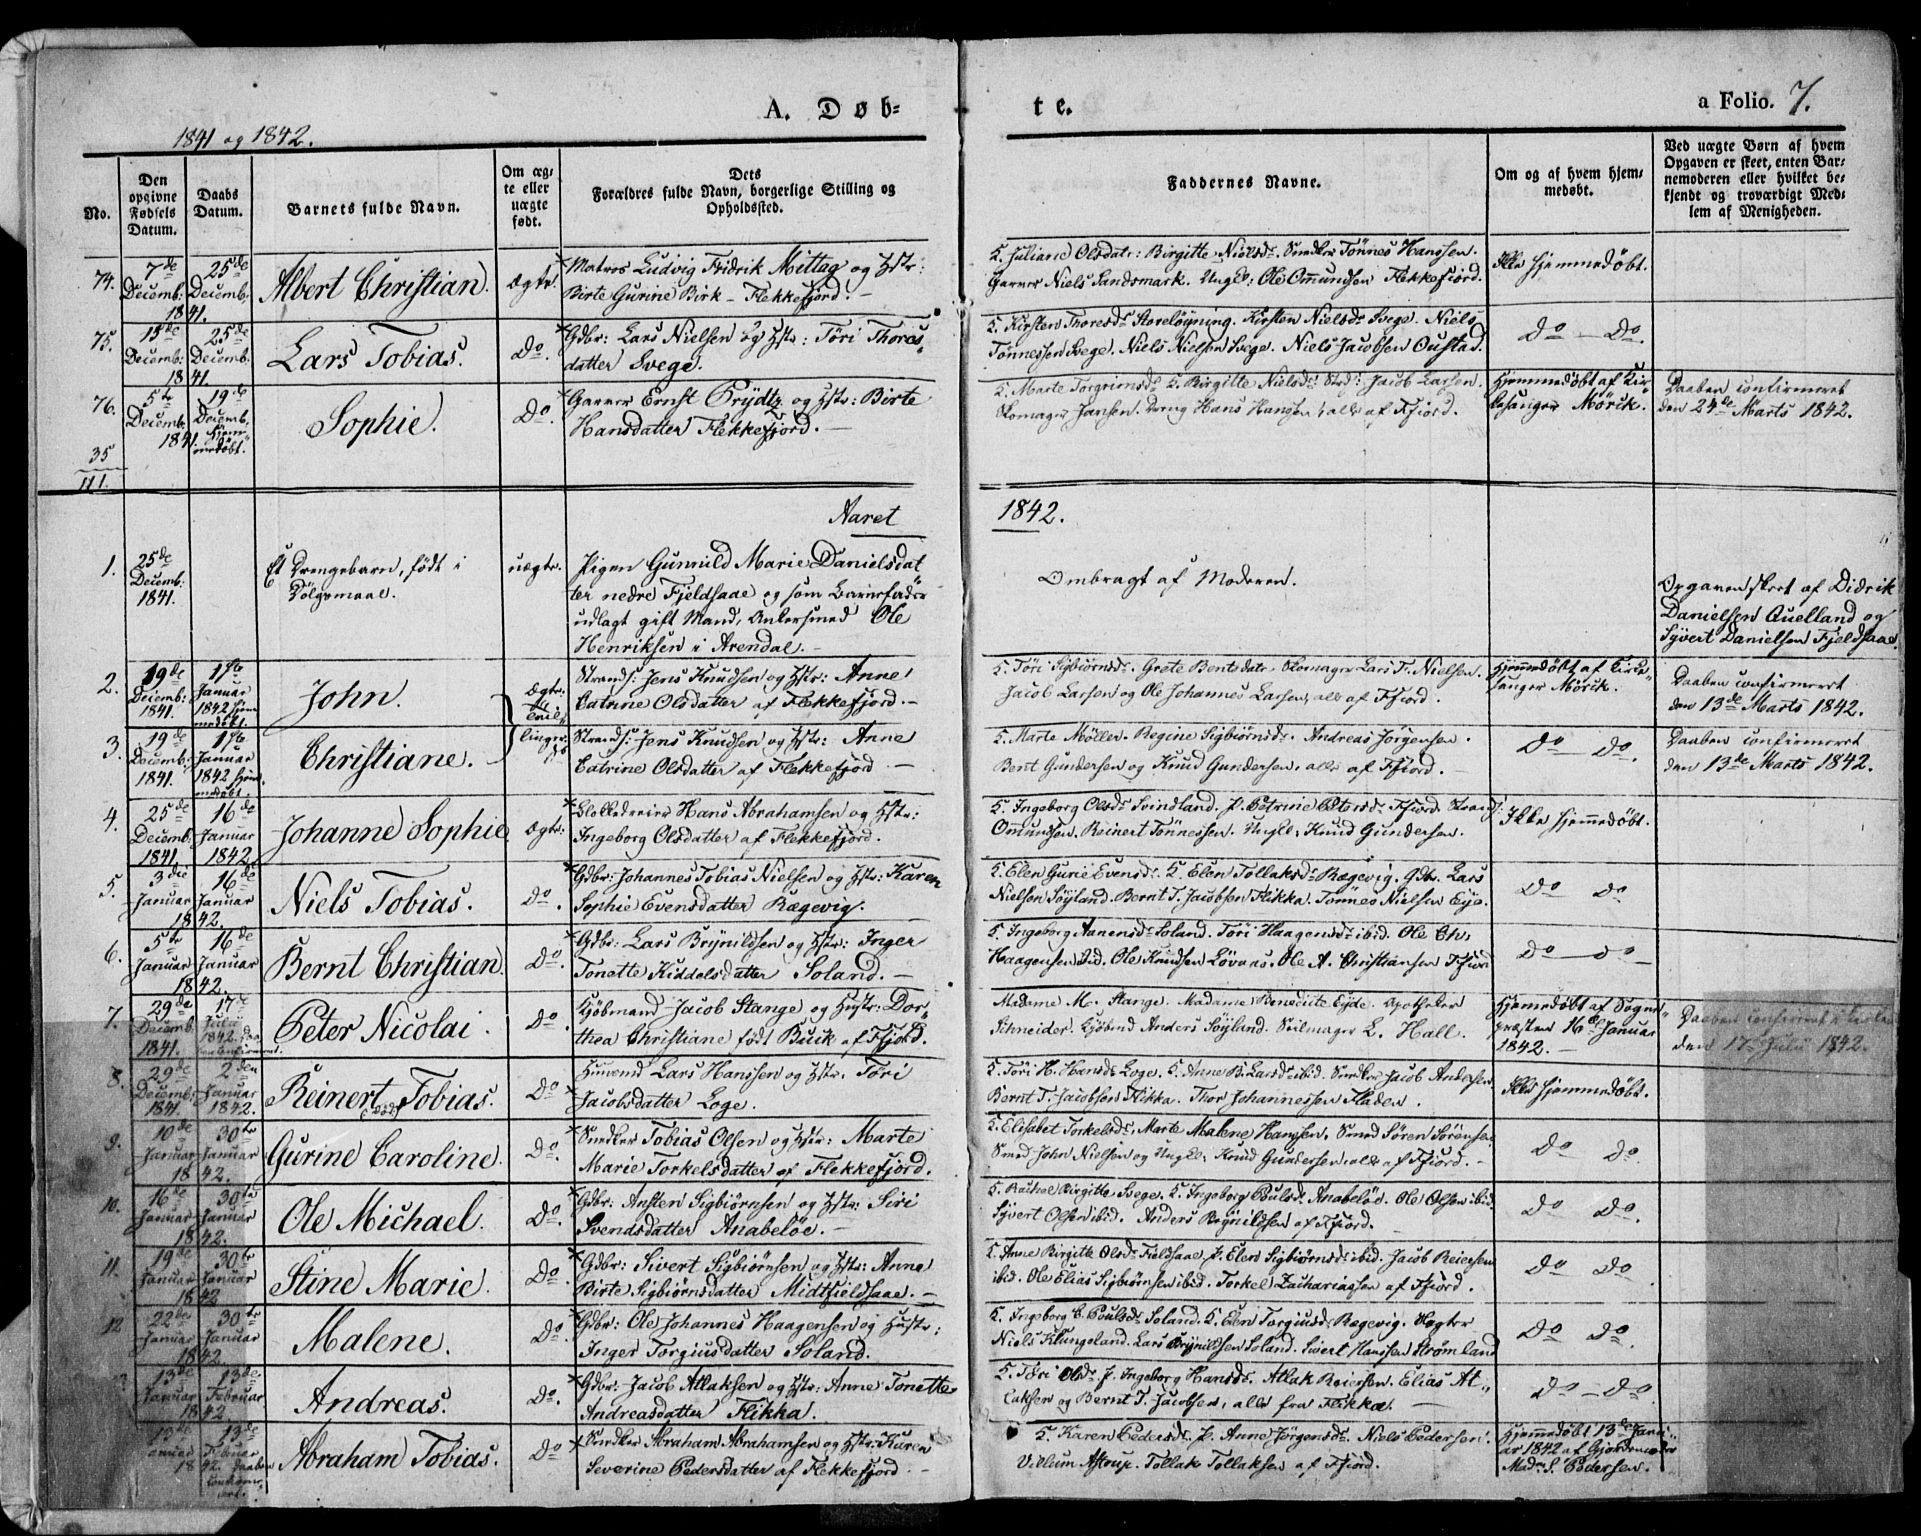 A. Døb=
te.
a Folio. 7.
1841 og 1842.
No.
Den opgivne Fødsels Datum.
Daabs Datum.
Barnets fulde Navn.
Om æg=te eller uægte født.
Dets Forældres fulde Navn, borgerlige Stilling og Opholdssted.
Faddernes Navne.
Om og af hvem hjem=medøbt.
Ved uægte Børn af hvem Opgaven er skeet, enten Bar=nemoderen eller hvilket be=kjendt og troværdigt Med=lem af Menigheden.
74. 7de Decemb: 1841. 25de Decemb. Albert Christian. Ægte. Matros Ludvig Fridrik Mittag og Hstr:
Birte Gurine Birk - Flekkefjord. -
K. Juliane Olsdatr: Birgitte Nielsd. Snedker Tönnes Hanssen.
Garver Niels Sandsmark. Ungk: Ole Omundsen Flekkefjord.
Ikke hjemmedöbt.
75. 15de Decemb: 1841. 25de Decemb. Lars Tobias. Do. Gdbr: Lars Nielsen og Hstr: Töri Thores
datter Svege.
K. Kirsten Thoresdr Storelöyning. Kirsten Nielsdr Svege. Niels
Tönnessen Svege. Niels Nielsen Svege. Niels Jacobsen Oustad.
Do - Do.
76. 5te Decemb. 1841. 19de Decemb. hjemmedöbt. Sophie. Do. Garver Ernst Prydtz og Hstr: Birte
Hansdatter Flekkefjord. -
K. Marte Torgrimsdr K. Birgitte Nielsdr Strd: Jacob Larsen.
Skomager Jansen. Dreng Hans Hansen, alle af Ffjord.
Hjemmedöbt af Kirkesanger Mörik.
Daaben confirmeret
den 24de Marts 1842.
35
111.
Aaret
1842.
1. 25de Decemb: 1841. Et Drengebarn, født i
Dölgsmaal.
uægte. Pigen Gunnuld Marie Danielsdat
ter nedre Fjeldsaae og som Barnefader
udlagt gift Mand, Ankersmed Ole
Henriksen i Arendal. -
Ombragt af Moderen.
Opgaven skeet af Didrik
Danielsen Quelland og
Syvert Danielsen Fjeldsaae.
2. 19de Decemb: 1841. 1ste Januar 1842 hjemmedöbt. John. Ægte. Strands: Jens Knudsen og Hstr: Anne
Catrine Olsdatter af Flekkefjord. -
K. Töri Sigbiörnsdr Grete Bentsdatr Skomager Lars T. Nielsen.
Jacob Larsen og Ole Johannes Larsen, alle af Ffjord.
Hjemmedöbt af Kirkesanger Mörik.
Daaben confirmeret
den 13de Marts 1842.
3. 19de Decemb: 1841. 1ste Januar 1842 hjemmedöbt. Christiane. Strands: Jens Knudsen og Hstr: Anne
Catrine Olsdatter af Flekkefjord -
K. Marte Møller. Regine Sigbiörnsdr Andreas Jørgensen.
Bent Gundersen og Knud Gundersen, alle af Ffjord. -
Do - Do.
Daaben confirmeret
den 13de Marts 1842.
4. 25de Decemb: 1841. 16de Januar 1842. Johanne Sophie. Ægte: Blokkedreier Hans Abrahamsen og Hstr:
Ingeborg Olsdatter af Flekkefjord.
K. Ingeborg Olsdr Svindland. P. Petrine Petersdr Ffjord. Strands:
Omundsen, Reinert Tönnessen. Ungk: Knud Gundersen.
Ikke hjemmedöbt.
5. 3die Januar 1842. 16de Januar Niels Tobias. Do. Gdbr: Johannes Tobias Nielsen og Hstr: Karen
Sophie Evensdatter Rægevig.
K. Elen Gurie Evensdr. K. Elen Tollaksdr Rægevig. Gdbr. Lars
Nielsen Söyland. Bernt T. Jacobsen Flikka. Tönnes Nielsen Eye.
Do Do.
6. 5te Januar 1842. 16de Januar Bernt Christian. Do. Gdbr: Lars Brynildsen og Hstr: Inger
Tonette Kiddelsdatter Soland. -
K. Ingeborg Aanensdr Soland. Töri Haagensdr ibid. Ole Chr
Haagensen ibid. Ole Knudsen Lövaas. Ole A. Christiansen Ffjord
Do - Do -
7. 29de Decemb. 1841. 17de Julii 1842. Peter Nicolai. Do. Kjöbmand Jacob Stange og Hustr: Dor
thea Christiane født Buck af Ffjord.
Madame M. Stange. Madame Benedicte Eyde. Apotheker
Schneider. Kjöbmd Anders Söyland. Seilmager L. Hall.
Hjemmedöbt af Sogne
præsten 16de Januar
1842. -
Daaben confirmeret i Kirken
den 17de Julii 1842.
8. 29de Decemb: 1841. 2den Januar 1842. Reinert Tobias. (død) Do Huusmd Lars Hanssen og Hstr. Töri
Jacobsdatter Loge.
K. Töri H. Hansdr Loge. K. Anne B. Larsdr ibid. Snedker Jacob Andersen
Bernt T. Jacobsen Flikka. Thor Johannessen Fladen.
Ikke hjemmedöbt.
9. 10de Januar 1842. 30te Januar Gurine Caroline. Do. Snedker Tobias Olsen og Hstr: Marte
Marie Torkelsdatter af Flekkefjord.
K. Elisabet Torkelsdr. Marte Malene Hanssen. Smed Sören Sörensen
Smed John Nielsen og Ungk: Knud Gundersen, alle af Ffjord. -
Do Do.
10. 16de Januar 1842. 30te Januar Ole Michael. Do. Gdbr: Ansten Sigbiörnsen og Hstr: Siri
Svendsdatter Anabelöe. -
K. Rachel Birgitte Svege. K. Ingeborg Poulsdr Anabelöe. Ole Olsen ibid.
Syvert Olsen ibid. Anders Brynildsen af Ffjord.
Do Do.
11. 19de Januar 1842 30te Januar Stine Marie. Do. Gdbr: Sivert Sigbiörnsen og Hstr: Anne
Birte Sigbiörnsdatter Midtfieldsaae. -
K. Anne Birgitte Olsdr Fieldsaae. P. Elen Sigbiörnsdr ibid. Jacob Reiersen
ibid. Ole Elias Sigbiörnsen ibid. Torkel Zachariassen af Ffjord.
Do Do.
12 22de Januar 1842. 30te Januar Malene. Do. Gdbr: Ole Johannes Haagensen og Hustr:
Inger Torgiusdatter Soland.
K. Ingeborg C. Poulsdr Soland. K. Elen Torgiusdr Rægevig. Vægter
Niels Klungeland. Lars Brynildsen Soland. Sivert Hanssen Strömland
Do Do.
13de Januar 1842 13de Februar Andreas. Do. Gdbr: Jacob Atlaksen og Hstr: Anne Tonette
Andreasdatter Flikka.
K. Töri Olsdr. P. Ingeborg Hansdr. Atlak Reiersen. Elias At
laksen og Bernt T. Jacobsen, alle fra Flikka. -
Do - Do.
13de Januar 1842. 13de Februar Daaben confirmeret. Abraham Tobias. Do Snedker Abraham Abrahamsen og Hstr: Karen
Severine Pedersdatter af Flekkefjord. -
K. Karen Pedersdr. P. Anne Jörgensdr. Niels Pedersen.
Villum Astrup. Tollak Tollaksen af Ffjord.
Hjemmedöbt 13de Janu
ar 1842 af Gjordemoder
Madm S. Pedersen.